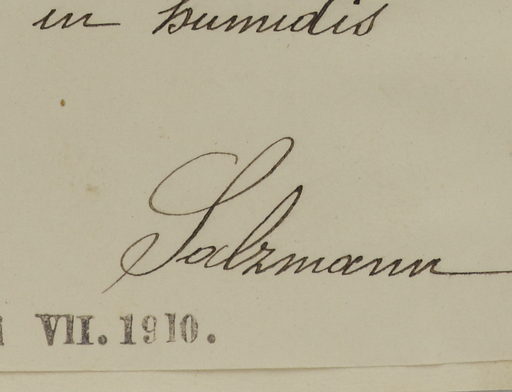 in humidis
Salzmann
i VII. 1910.